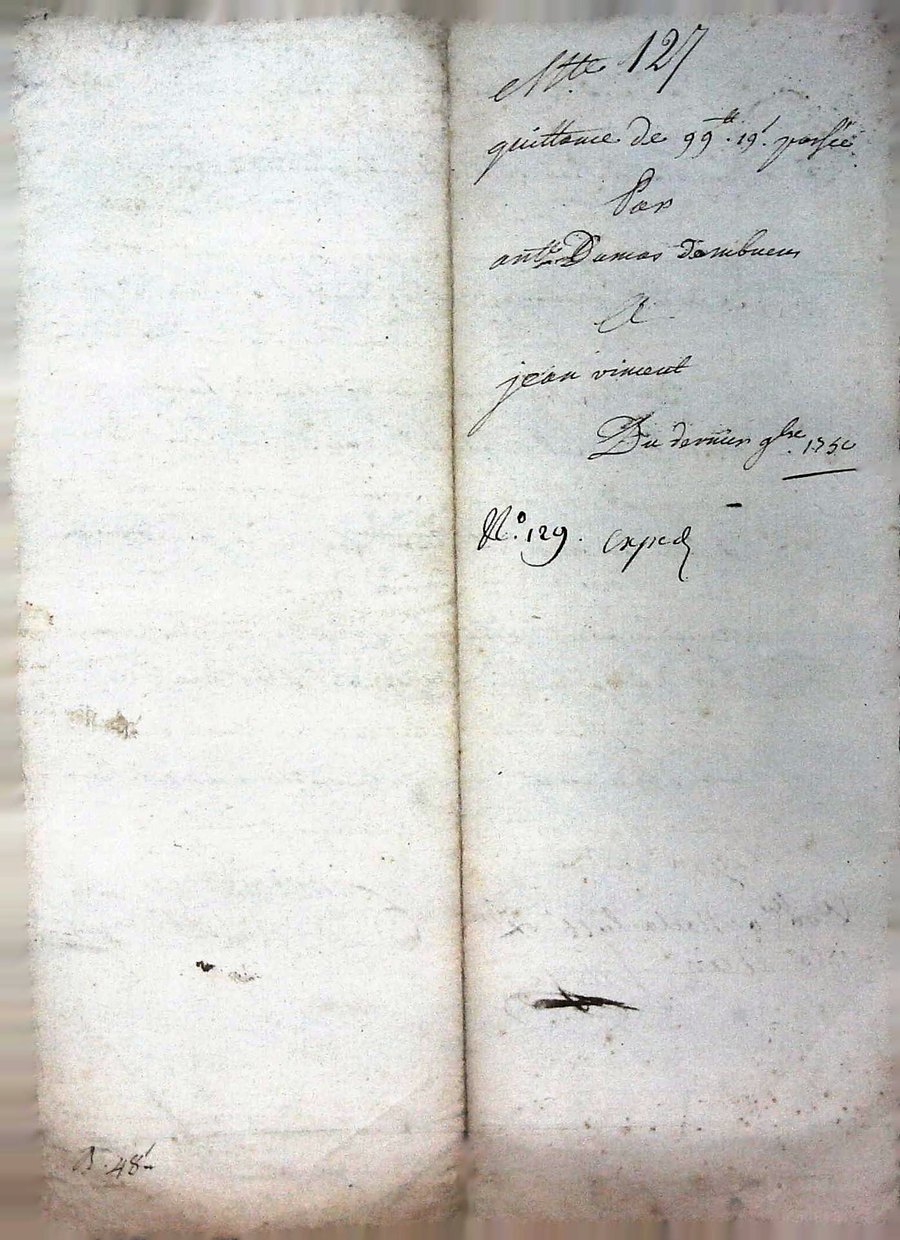 Ntte 127
quittance de 99ᵗᵗ. 19ˢ. passée
Par
antᵉ Dumas dambueus
A
jean vincent
Du dernier 9bre. 1750
N.° 129. exped
B. 48ˢ